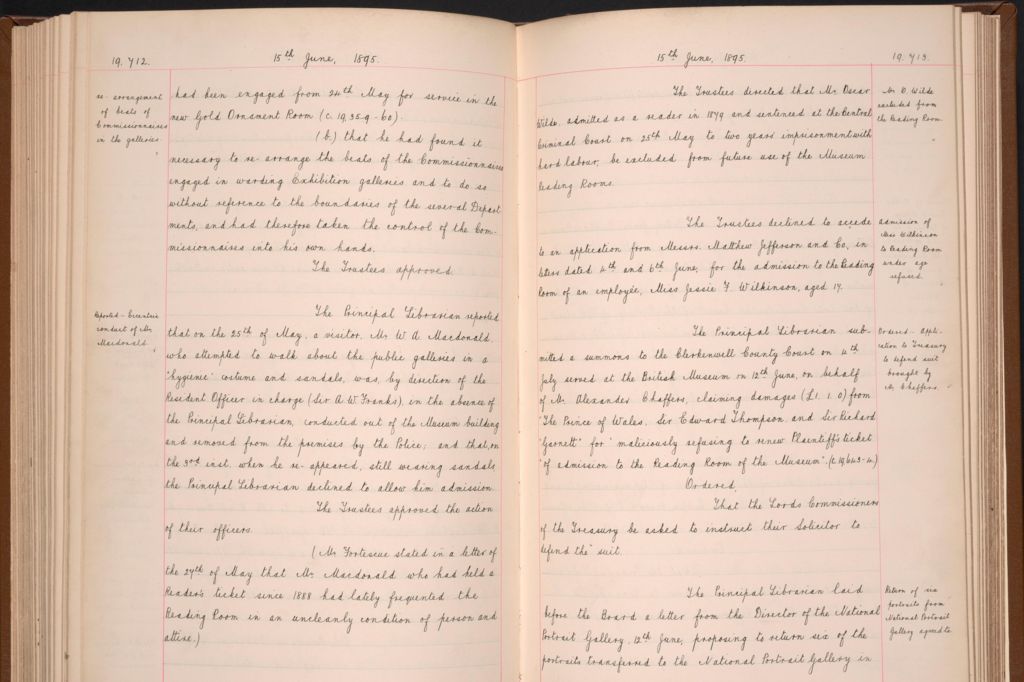 19,712.
15th June, 1895.
re-arrangement
of beats of
Commissionnaires
in the galleries.
had been engaged from 24th May for service in the
new Gold Ornament Room (c. 19,359-60).
(b) that he had found it
necessary to re-arrange the beats of the Commissionnaires
engaged in warding Exhibition galleries and to do so
without reference to the boundaries of the several Depart
ments, and had therefore taken the control of the Com-
missionnaires into his own hands.
The Trustees approved.
Reported - Eccentric
conduct of Mr
Macdonald.
The Principal Librarian reported
that on the 25th of May, a visitor, Mr W. A. Macdonald,
who attempted to walk about the public galleries in a
"hygienic" costume and sandals, was, by direction of the
Resident Officer in charge (Sir A. W. Franks), in the absence of
the Principal Librarian, conducted out of the Museum building
and removed from the premises by the Police; and that, on
the 3rd inst. when he re-appeared, still wearing sandals
the Principal Librarian declined to allow him admission.
The Trustees approved the action
of their officers.
(Mr Fortescue stated in a letter of
the 27th of May that Mr Macdonald who had held a
Reader's ticket since 1888 had lately frequented the
Reading Room in an uncleanly condition of person and
attire.)
15th June, 1895.
19,713.
The Trustees directed that Mr Oscar
Wilde, admitted as a reader in 1879 and sentenced at the Central
Criminal Court on 25th May to two years imprisonment with
hard labour, be excluded from future use of the Museum
Reading Rooms.
Mr O. Wilde
excluded from
the Reading Room.
The Trustees declined to accede
to an application from Messrs. Matthew Jefferson and Co, in
letters dated 4th and 6th June, for the admission to the Reading
Room of an employée, Miss Jessie F. Wilkinson, aged 17.
Admission of
Miss Wilkinson
to Reading Room
under age
refused.
The Principal Librarian sub-
mitted a summons to the Clerkenwell County Court on 4th
July served at the British Museum on 12th June, on behalf
of Mr Alexander Chaffers, claiming damages (£1. 1. 0) from
"The Prince of Wales, Sir Edward Thompson, and Sir Richard
"Garnett" for "maliciously refusing to renew Plaintiff's ticket
"of admission to the Reading Room of the Museum". (c. 19,643-4.)
Ordered,
That the Lords Commissioners
of the Treasury be asked to instruct their Solicitor to
defend the suit.
Ordered - Appli-
cation to Treasury
to defend suit
brought by
Mr Chaffers.
The Principal Librarian laid
before the Board a letter from the Director of the National
Portrait Gallery, 12th June, proposing to return six of the
portraits transferred to the National Portrait Gallery in
Return of six
portraits from
National Portrait
Gallery agreed to.